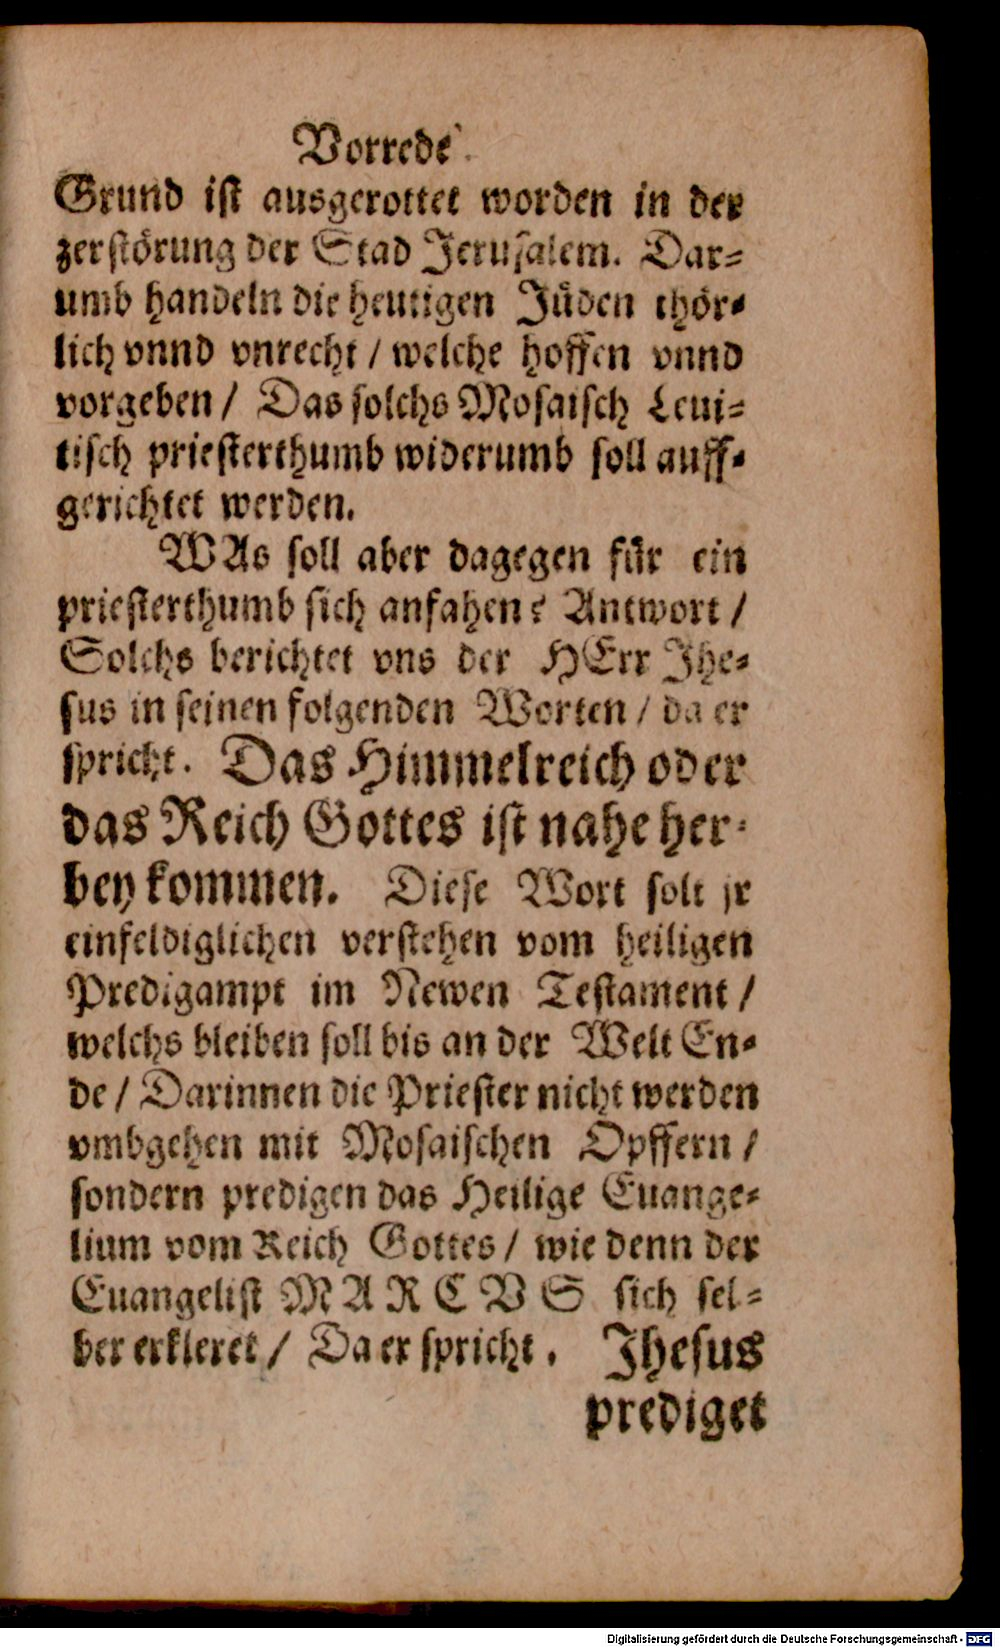 Vorrede.
Grund ist ausgerottet worden in der
zerstörung der Stad Jerusalem. Dar-
umb handeln die heutigen Jüden thör-
lich vnnd vnrecht / welche hoffen vnnd
vorgeben / Das solchs Mosaisch Leui-
tisch priesterthumb widerumb soll auff-
gerichtet werden.
WAs soll aber dagegen für ein
priesterthumb sich anfahen? Antwort /
Solchs berichtet vns der HErr Jhe-
sus in seinen folgenden Worten / da er
spricht. Das Himmelreich oder
das Reich Gottes ist nahe her-
bey kommen. Diese Wort solt jr
einfeldiglichen verstehen vom heiligen
Predigampt im Newen Testament /
welchs bleiben soll bis an der Welt En-
de / Darinnen die Priester nicht werden
vmbgehen mit Mosaischen Opffern /
sondern predigen das Heilige Euange-
lium vom Reich Gottes / wie denn der
Euangelist MARCVS sich sel-
ber erkleret / Da er spricht. Jhesus
prediget
Digitalisierung gefördert durch die Deutsche Forschungsgemeinschaft - DFG